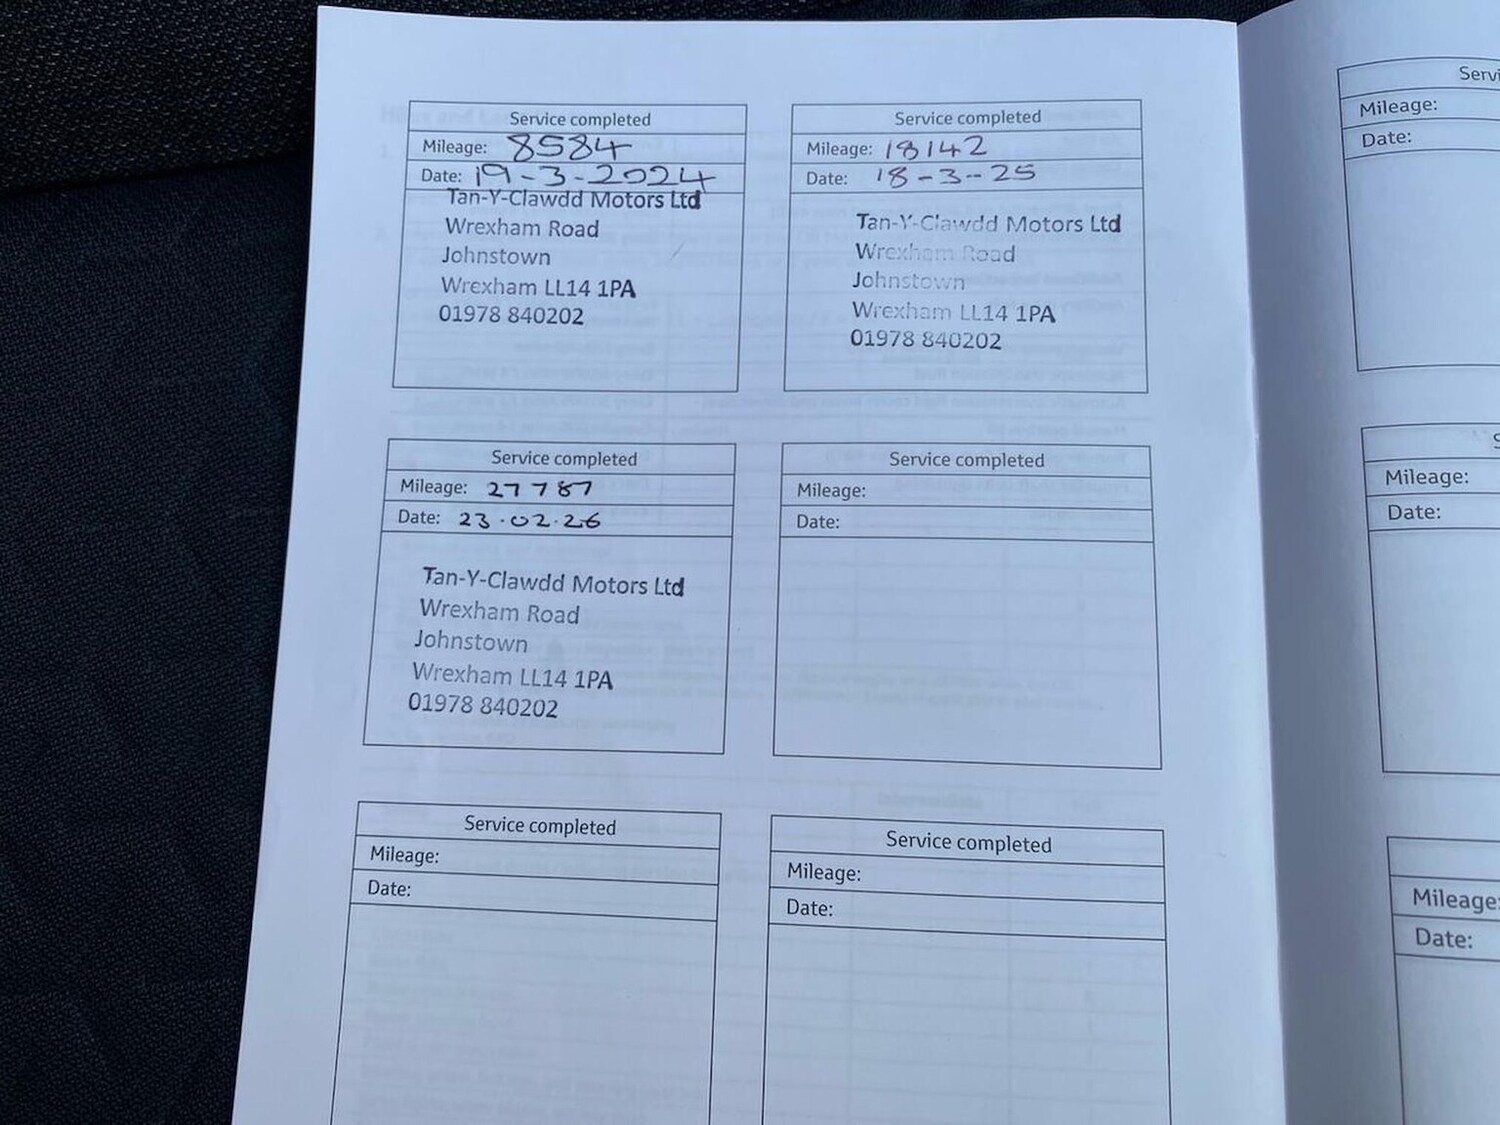 Service completed
Mileage: 8584
Date: 19-3-2024
Tan-Y-Clawdd Motors Ltd
Wrexham Road
Johnstown
Wrexham LL14 1PA
01978 840202
Service completed
Mileage: 18142
Date: 18-3-25
Tan-Y-Clawdd Motors Ltd
Wrexham Road
Johnstown
Wrexham LL14 1PA
01978 840202
Service completed
Mileage: 27787
Date: 23.02.26
Tan-Y-Clawdd Motors Ltd
Wrexham Road
Johnstown
Wrexham LL14 1PA
01978 840202
Service completed
Mileage:
Date:
Service completed
Mileage:
Date:
Service completed
Mileage:
Date:
Servi
Mileage:
Date:
S
Mileage:
Date:
Mileage:
Date: